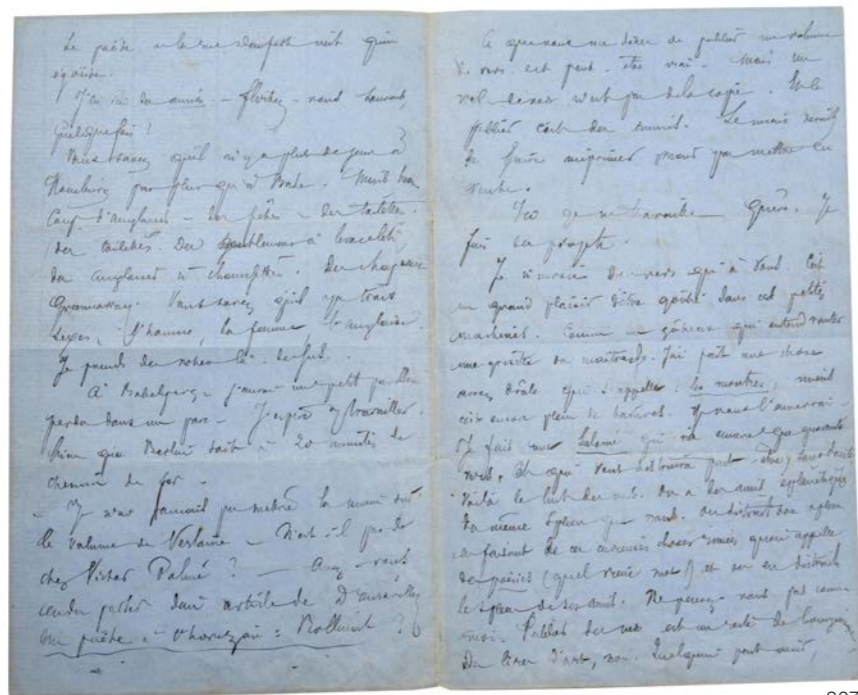 Le poète de la rue Denfert n'est qu'un
égoïste.
J'ai vu
quelquefois ?
Vous savez qu'il n'y a plus de jeux à
Hombourg pas plus qu'à Bade. Mais beau
coup d'anglaises - des fêtes - des toilettes.
des toilettes. Des gentlemens à bracelets,
des anglaises à Des chapeaux
Vous savez qu'il y a trois
sexes, l'homme, la femme, l'anglaise.
Je prends des notes là-dessus.
A Babelsberg - j'aurai un petit pavillon
perdu dans un parc - J'espère y travailler
bien que Berlin soit à 20 minutes de
chemin de fer -
- Je n'ai jamais pu mettre la main sur
le volume de Verlaine - N'est-il pas de
chez Victor Palmé ? - Avez-vous
entendu parler d'un article de D'aurevilly
un poète à l'horizon : Rollinat ?
Ce que vous me dites de publier un volume
de vers est peut-être vrai - Mais un
vol. de vers n'est pas de la copie. Et le
publier c'est des ennuis. Le mieux serait
de faire imprimer mais pas mettre en
vente.
Ici je ne travaille guère. Je
fais des projets.
Je n'envoie des vers qu'à vous. C'est
un grand plaisir d'être goûté dans ces petites
machines. Comme un gâteux qui entend vanter
une de ses maîtresses. J'ai fait une chose
assez drôle qui s'appelle : les montres, mais
c'est encore plein de bavures. Je vous l'enverrai -
Je fais une Salomé qui n'a encore que quarante
vers. Et qui vous distraira peut-être, sans doute
Voilà le but des vers. On a des amis splénétiques
du même spleen que vous. On distrait son spleen
en faisant de ces choses rimées qu'on appelle
des poésies (quel vieux mot !) et on en distrait
le spleen de ses amis. Ne pensez-vous pas comme
moi. Publier des vers est un acte de bourgeois
Du livre d'art, non. Quelqu'un peut venir,